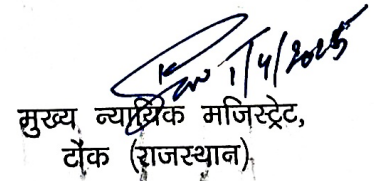 1/4/2025
मुख्य न्यायिक मजिस्ट्रेट,
टोंक (राजस्थान)